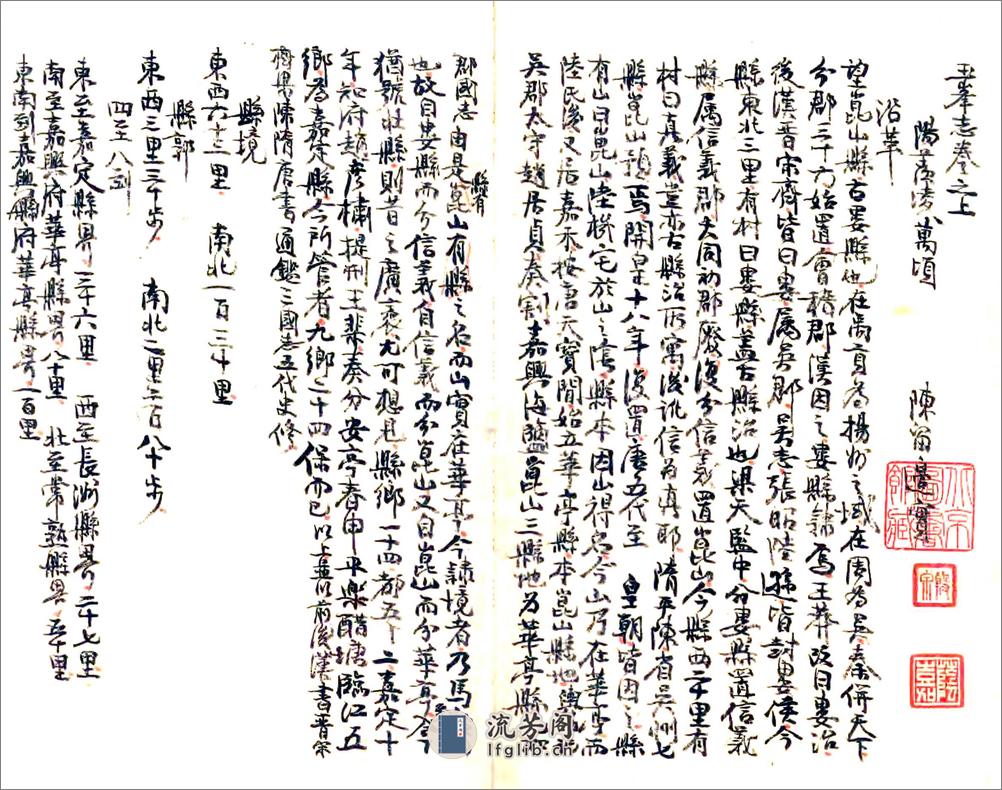 玉峯志卷之上
陽羨凌萬頃 陳
沿革
望崑山縣古婁縣也在禹貢為揚州之域在周為吳秦併天下
分郡三十六始置會稽郡漢因之婁縣隸焉王莽改曰婁治
後漢晋宋齊皆曰婁屬吳郡吳志張昭陸遜皆封婁侯今
縣東北三里有村曰婁縣盖古縣治也梁天監中分婁縣置信義
縣属信義郡大同初郡廢復分信義置崑山今縣西二十里有
村曰真義並亦古縣治所寓後訛信為真耶隋平陳省吳州七
縣崑山預焉開皇十八年復置唐五代至 皇朝皆因之縣
有山曰崑山陸機宅於山之陰縣本因山得名今山乃在華亭而
陸氏後又居嘉禾按唐天寶間始立華亭縣本崑山縣地輿地
吳郡太守趙居貞奏割嘉興海鹽崑山三縣地為華亭縣
郡國志由是崑山有縣之名而山實在華亭今隸境者乃馬
縣有
也故自婁縣而分信義自信義而分崑山又自崑山而分華亭今
猶號壯縣則昔之廣袤尤可想見縣鄉一十四都五十二嘉定十
年知府趙彦橚提刑王棐奏分安亭春申平樂醋塘臨江五
鄉為嘉定縣今所管者九鄉二十四保而已以上並以前後漢書晋宋
齊梁陳隋唐書通鑑三國志五代史修
縣境
東西六十三里 南北一百二十里
縣郭
東西三里三十步 南北二里二百八十步
四至八到
東至嘉定縣界三十六里 西至長洲縣界二十七里
南至嘉興府華亭縣界八十里 北至常熟縣界五十里
東南到嘉興府華亭縣界一百里
流芳阁
lfglib.cn